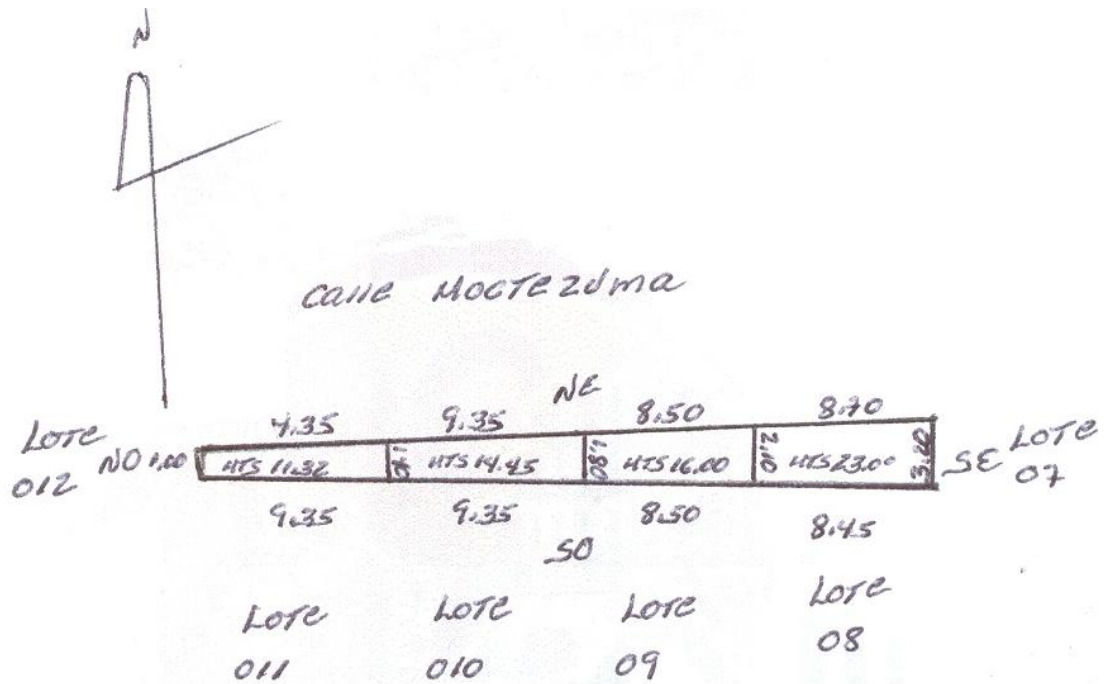 N
Calle Moctezuma
NE
4.35 9.35 8.50 8.70
Lote 012
NO 1.00
MTS 11.32
1.40
MTS 14.45
1.80
MTS 16.00
2.10
MTS 23.00
3.20
SE
Lote 07
9.35 9.35 8.50 8.45
SO
Lote 011
Lote 010
Lote 09
Lote 08